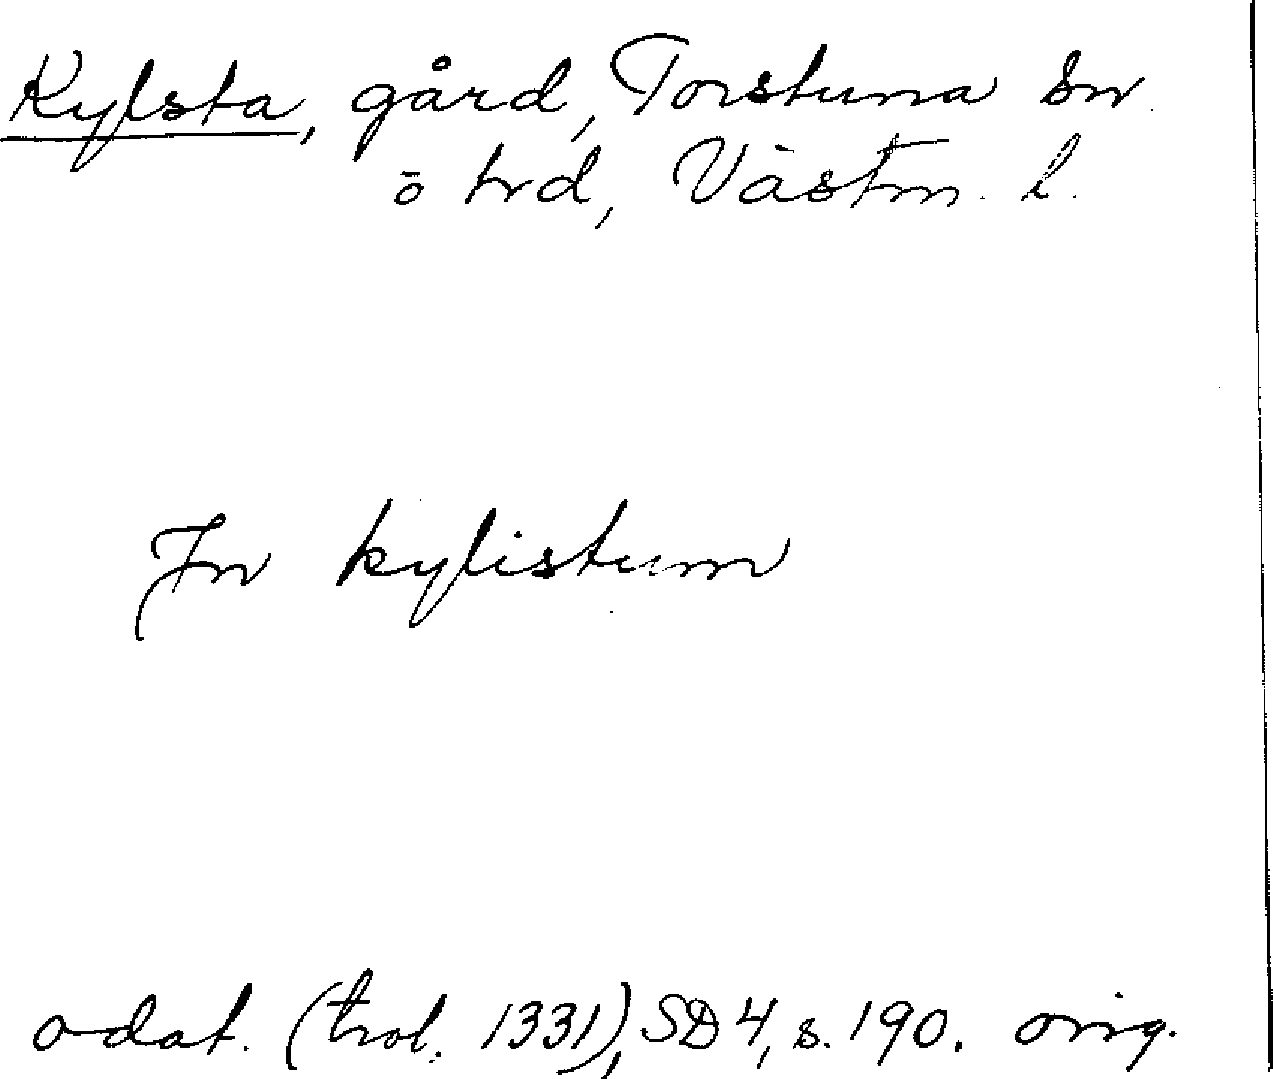 Kylsta, gård, Torstuna sn
ö hd, Västm. l.
In kylistum
odat. (trol. 1331), SD 4, s. 190. orig.